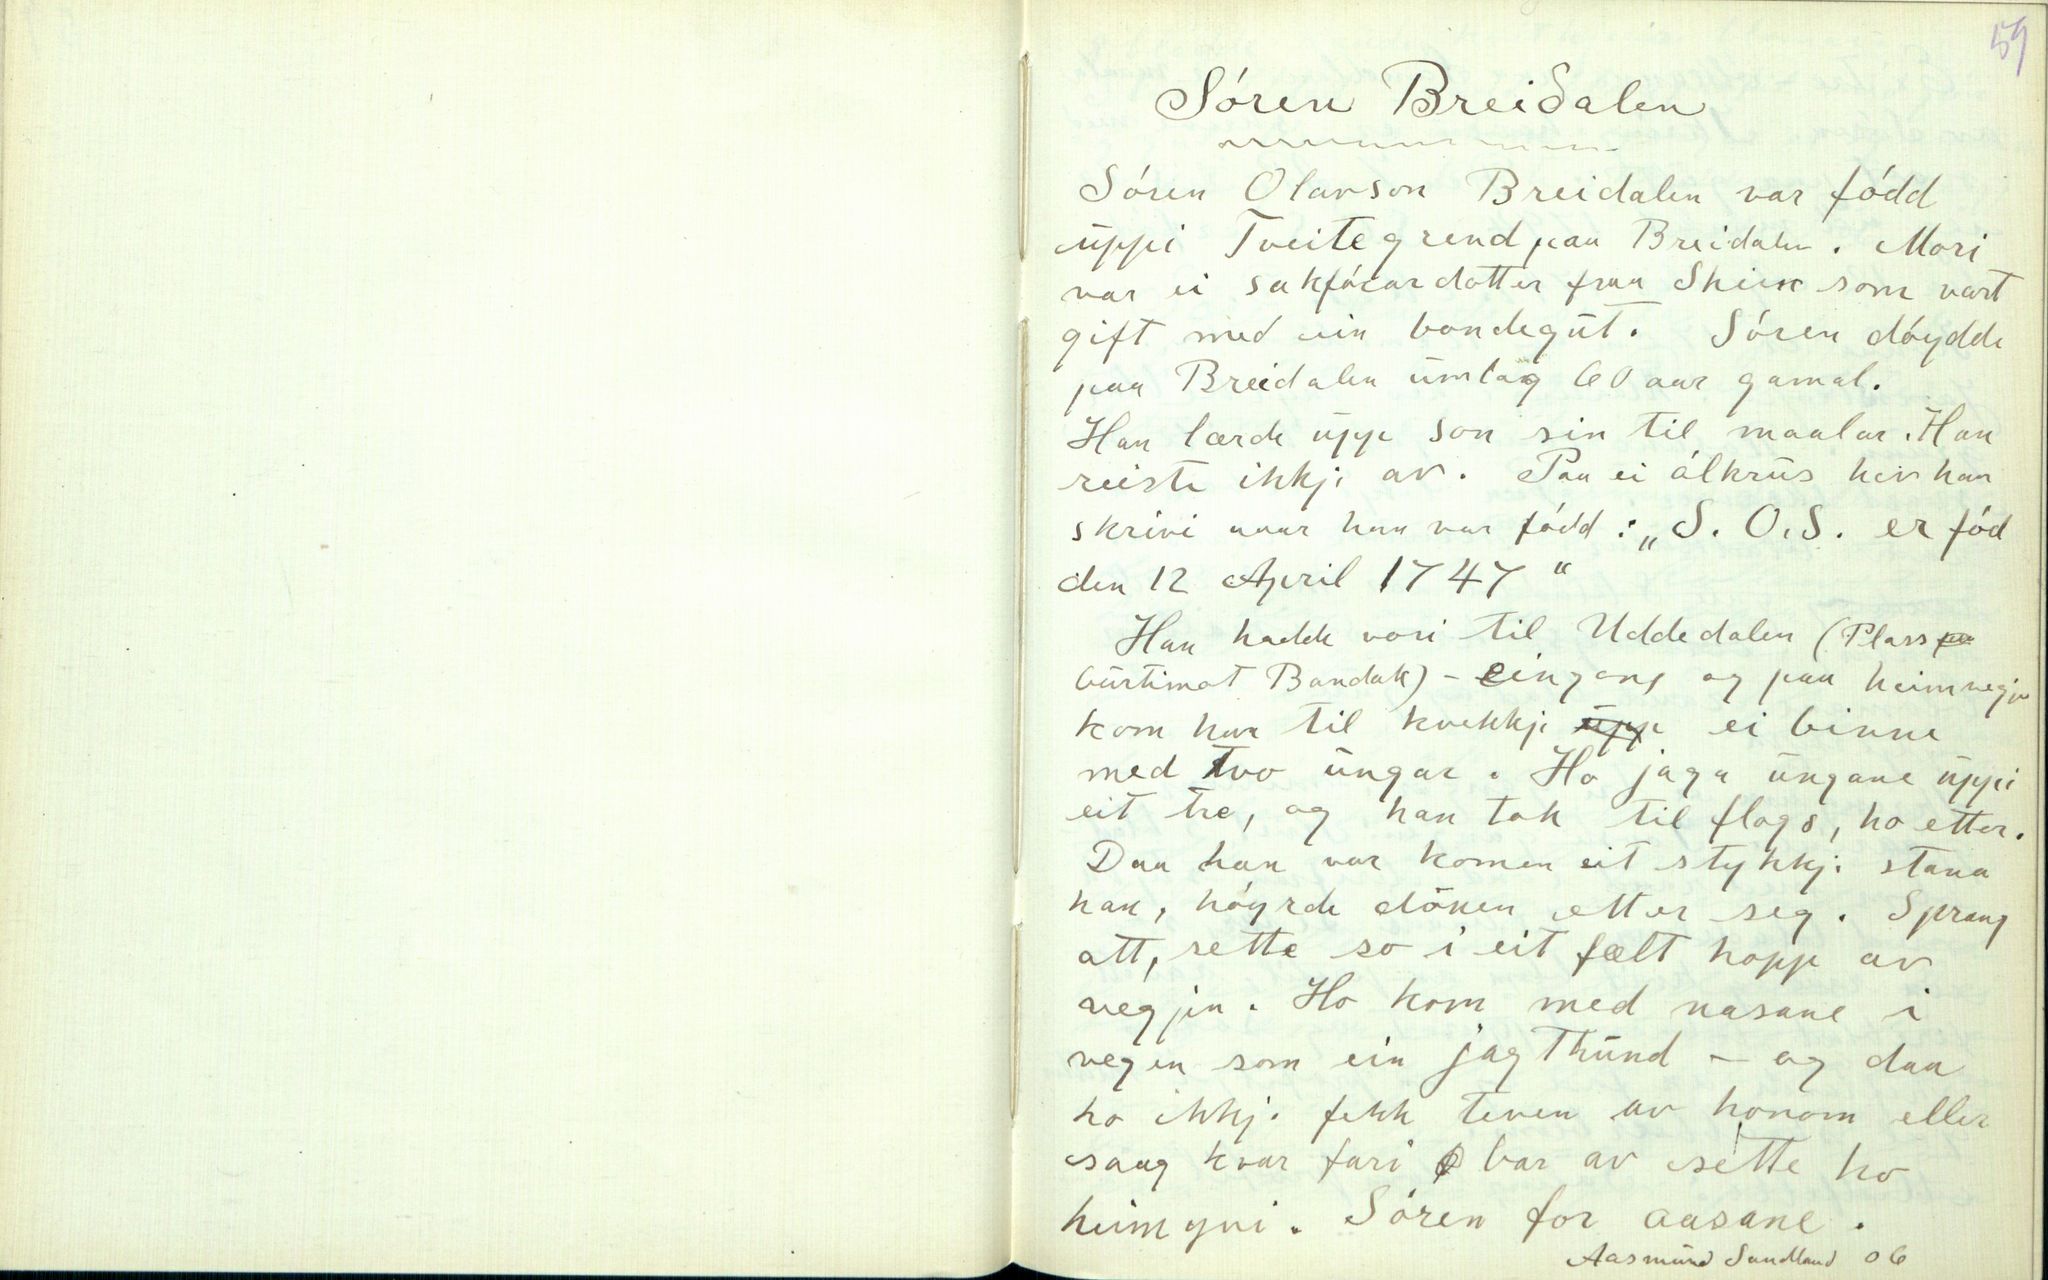 59
Sóren Breidalen
Sóren Olavson Breidalen var fódd
uppi Tveitegrend paa Breidalen. Mori
var ei sakfórardotter fraa Skien som vart
gift med ein bondegut. Sóren dóydde
paa Breidalen umlag 60 aar gamal.
Han lærde upp son sin til maalar. Han
reiste ikkji av. Paa ei ólkrus hev han
skrivi naar han var fódd: „S. O. S. er fód
den 12 April 1747“
Han hadde vori til Uddedalen (Plass
burtimot Bandak) – eingong og paa heimvegjen
kom han til kvekkje upp ei binne
med tvo ungar. Ho jaga ungane uppi
eit tre, og han tok til flogs, ho etter.
Daa han var komen eit stykkji stana
han, hóyrde dónen etter seg. Sprang
att, sette so i eit fælt hopp av
vegjen. Ho kom med nasane i
vegen som ein jagthund – og daa
ho ikkji fekk teven av honom eller
saag kvar fari bar av sette ho
heimyvi. Sóren for aasane.
Aasmund Sundland 06